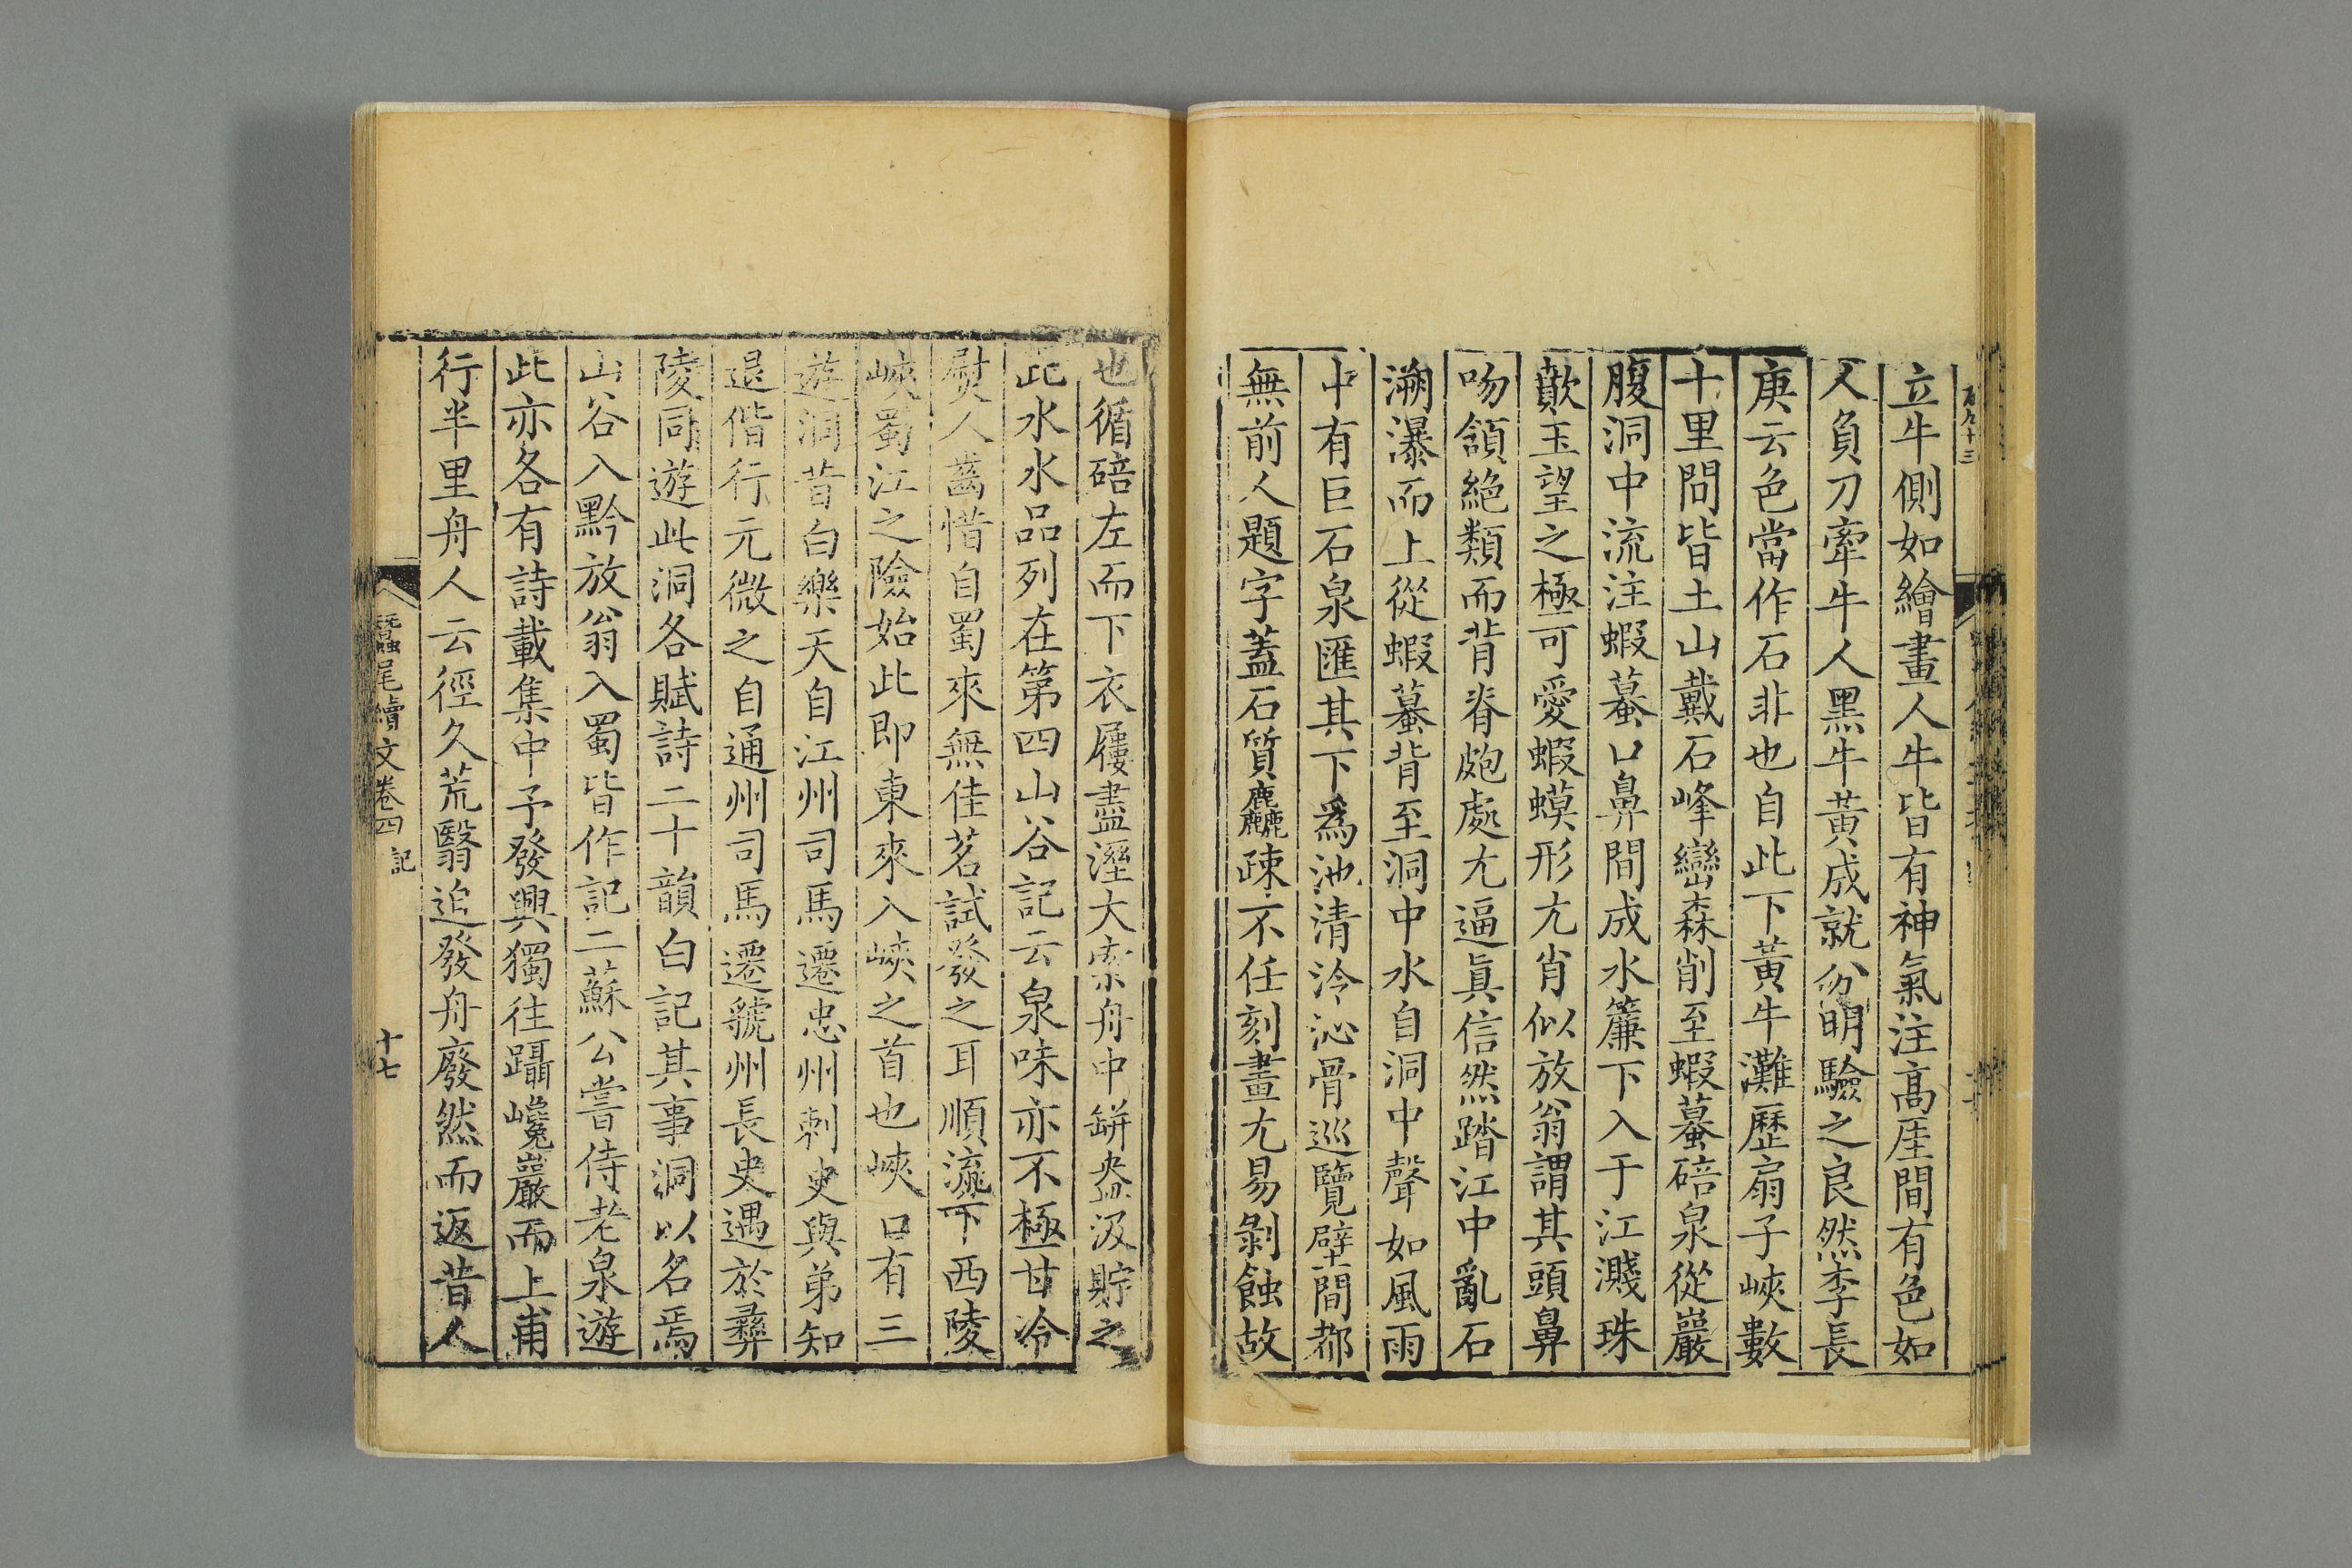 立牛側如繪畫人牛皆有神氣注高厓間有色如
人負刀牽牛人黑牛黃成就分明驗之良然李長
庚云色當作石非也自此下黃牛灘歷扇子峽數
十里問皆土山戴石峰巒森削至蝦蟇碚泉從巖
腹洞中流注蝦蟇口鼻間成水簾下入于江濺珠
歕玉望之極可愛蝦蟆形尤肖似放翁謂其頭鼻
吻頷絕類而背脊皰處尤逼眞信然踏江中亂石
溯瀑而上從蝦蟇背至洞中水自洞中聲如風雨
中有巨石泉匯其下爲池清泠沁骨巡覽壁間都
無前人題字蓋石質麤疎不任刻畫尤易剝蝕故
也循碚左而下衣屨盡溼大索舟中缾盎汲貯之
此水水品列在第四山谷記云泉味亦不極甘冷
熨人齒惜自蜀來無佳茗試發之耳順流下西陵
峽蜀江之險始此即東來入峽之首也峽口有三
遊洞昔白樂天自江州司馬遷忠州刺史與弟知
退偕行元微之自通州司馬遷虢州長史遇於彝
陵同遊此洞各賦詩二十韻白記其事洞以名焉
山谷入黔放翁入蜀皆作記二蘇公嘗侍老泉遊
此亦各有詩載集中予發興獨往躡巉巖而上甫
行半里舟人云徑久荒翳迫發舟廢然而返昔人
蠶尾續文卷四 記 十七